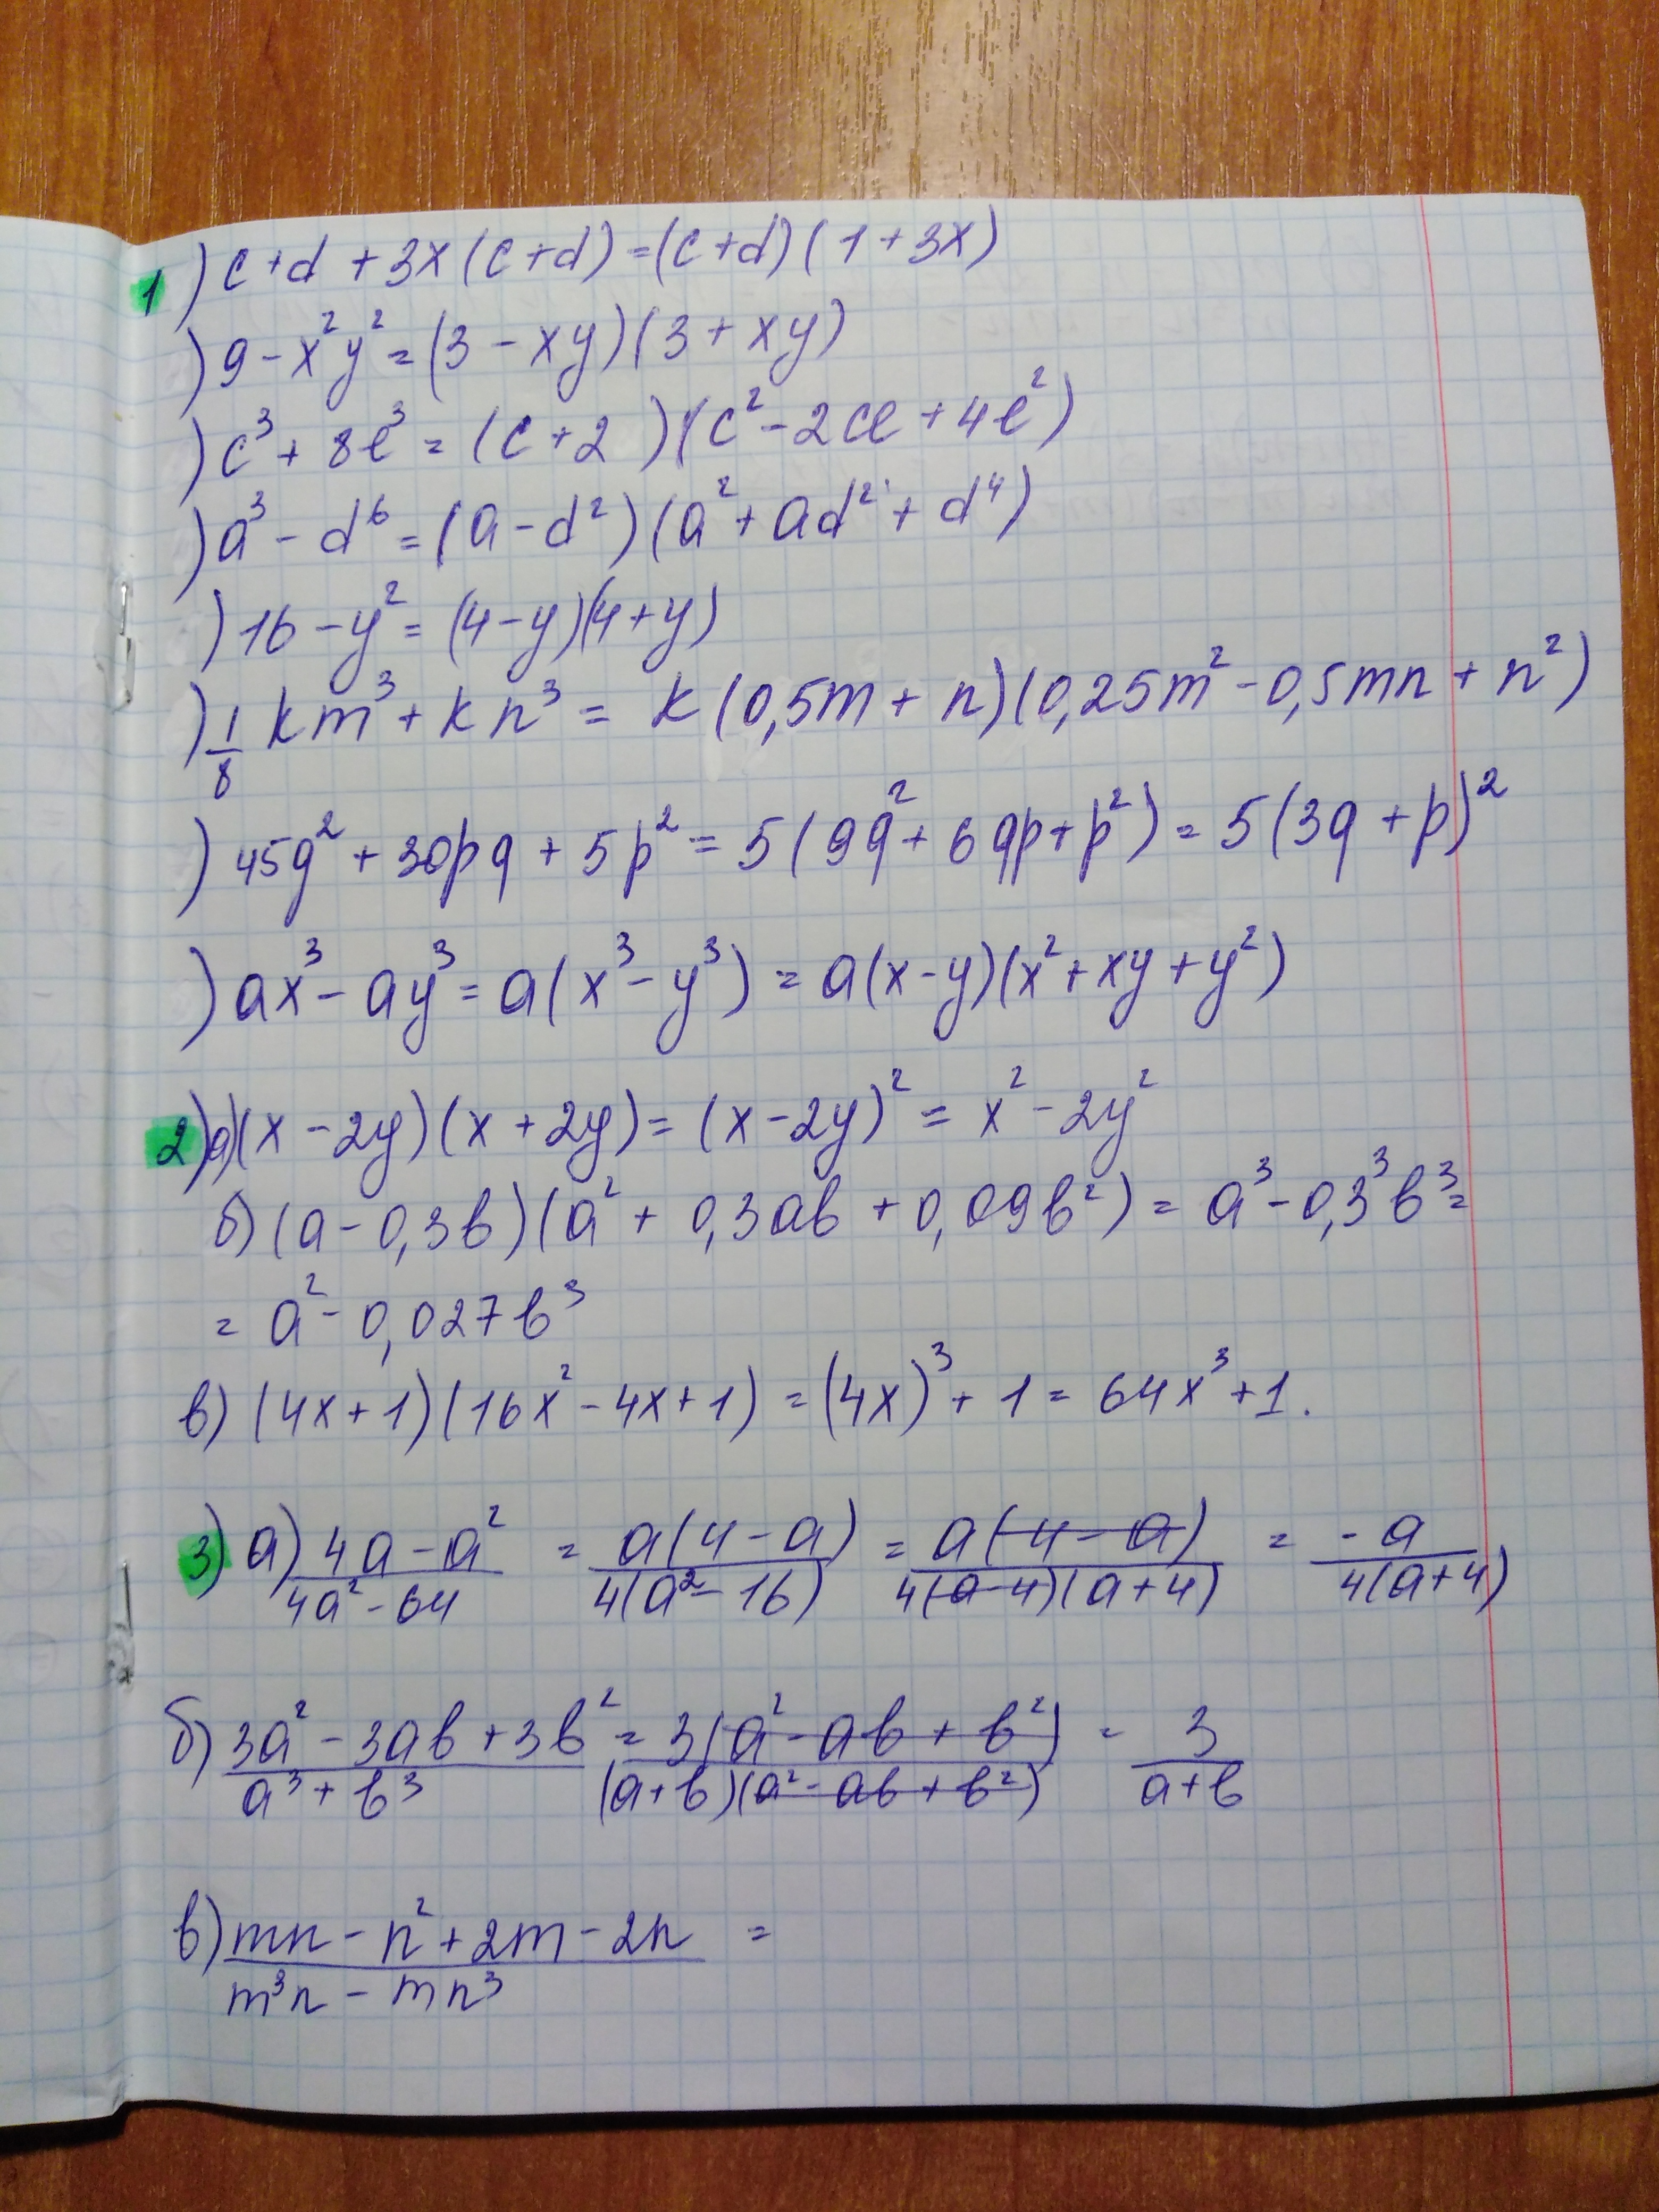 1) c + d + 3x(c + d) = (c + d)(1 + 3x)
) 9 - x²y² = (3 - xy)(3 + xy)
) c³ + 8e³ = (c + 2 )(c² - 2ce + 4e²)
) a³ - d⁶ = (a - d²)(a² + ad² + d⁴)
) 16 - y² = (4 - y)(4 + y)
) 1/8 km³ + kn³ = k(0,5m + n)(0,25m² - 0,5mn + n²)
) 45q² + 30pq + 5p² = 5(9q² + 6qp + p²) = 5(3q + p)²
) ax³ - ay³ = a(x³ - y³) = a(x - y)(x² + xy + y²)
2) а) (x - 2y)(x + 2y) = (x - 2y)² = x² - 2y²
б) (a - 0,3b)(a² + 0,3ab + 0,09b²) = a³ - 0,3³b³ =
= a² - 0,027b³
в) (4x + 1)(16x² - 4x + 1) = (4x)³ + 1 = 64x³ + 1.
3) а) (4a - a²)/(4a² - 64) = a(4 - a)/4(a² - 16) = a(4 - a)/4(a - 4)(a + 4) = -a/4(a + 4)
б) (3a² - 3ab + 3b²)/(a³ + b³) = 3(a² - ab + b²)/(a + b)(a² - ab + b²) = 3/(a + b)
в) (mn - n² + 2m - 2n)/(m³n - mn³) =